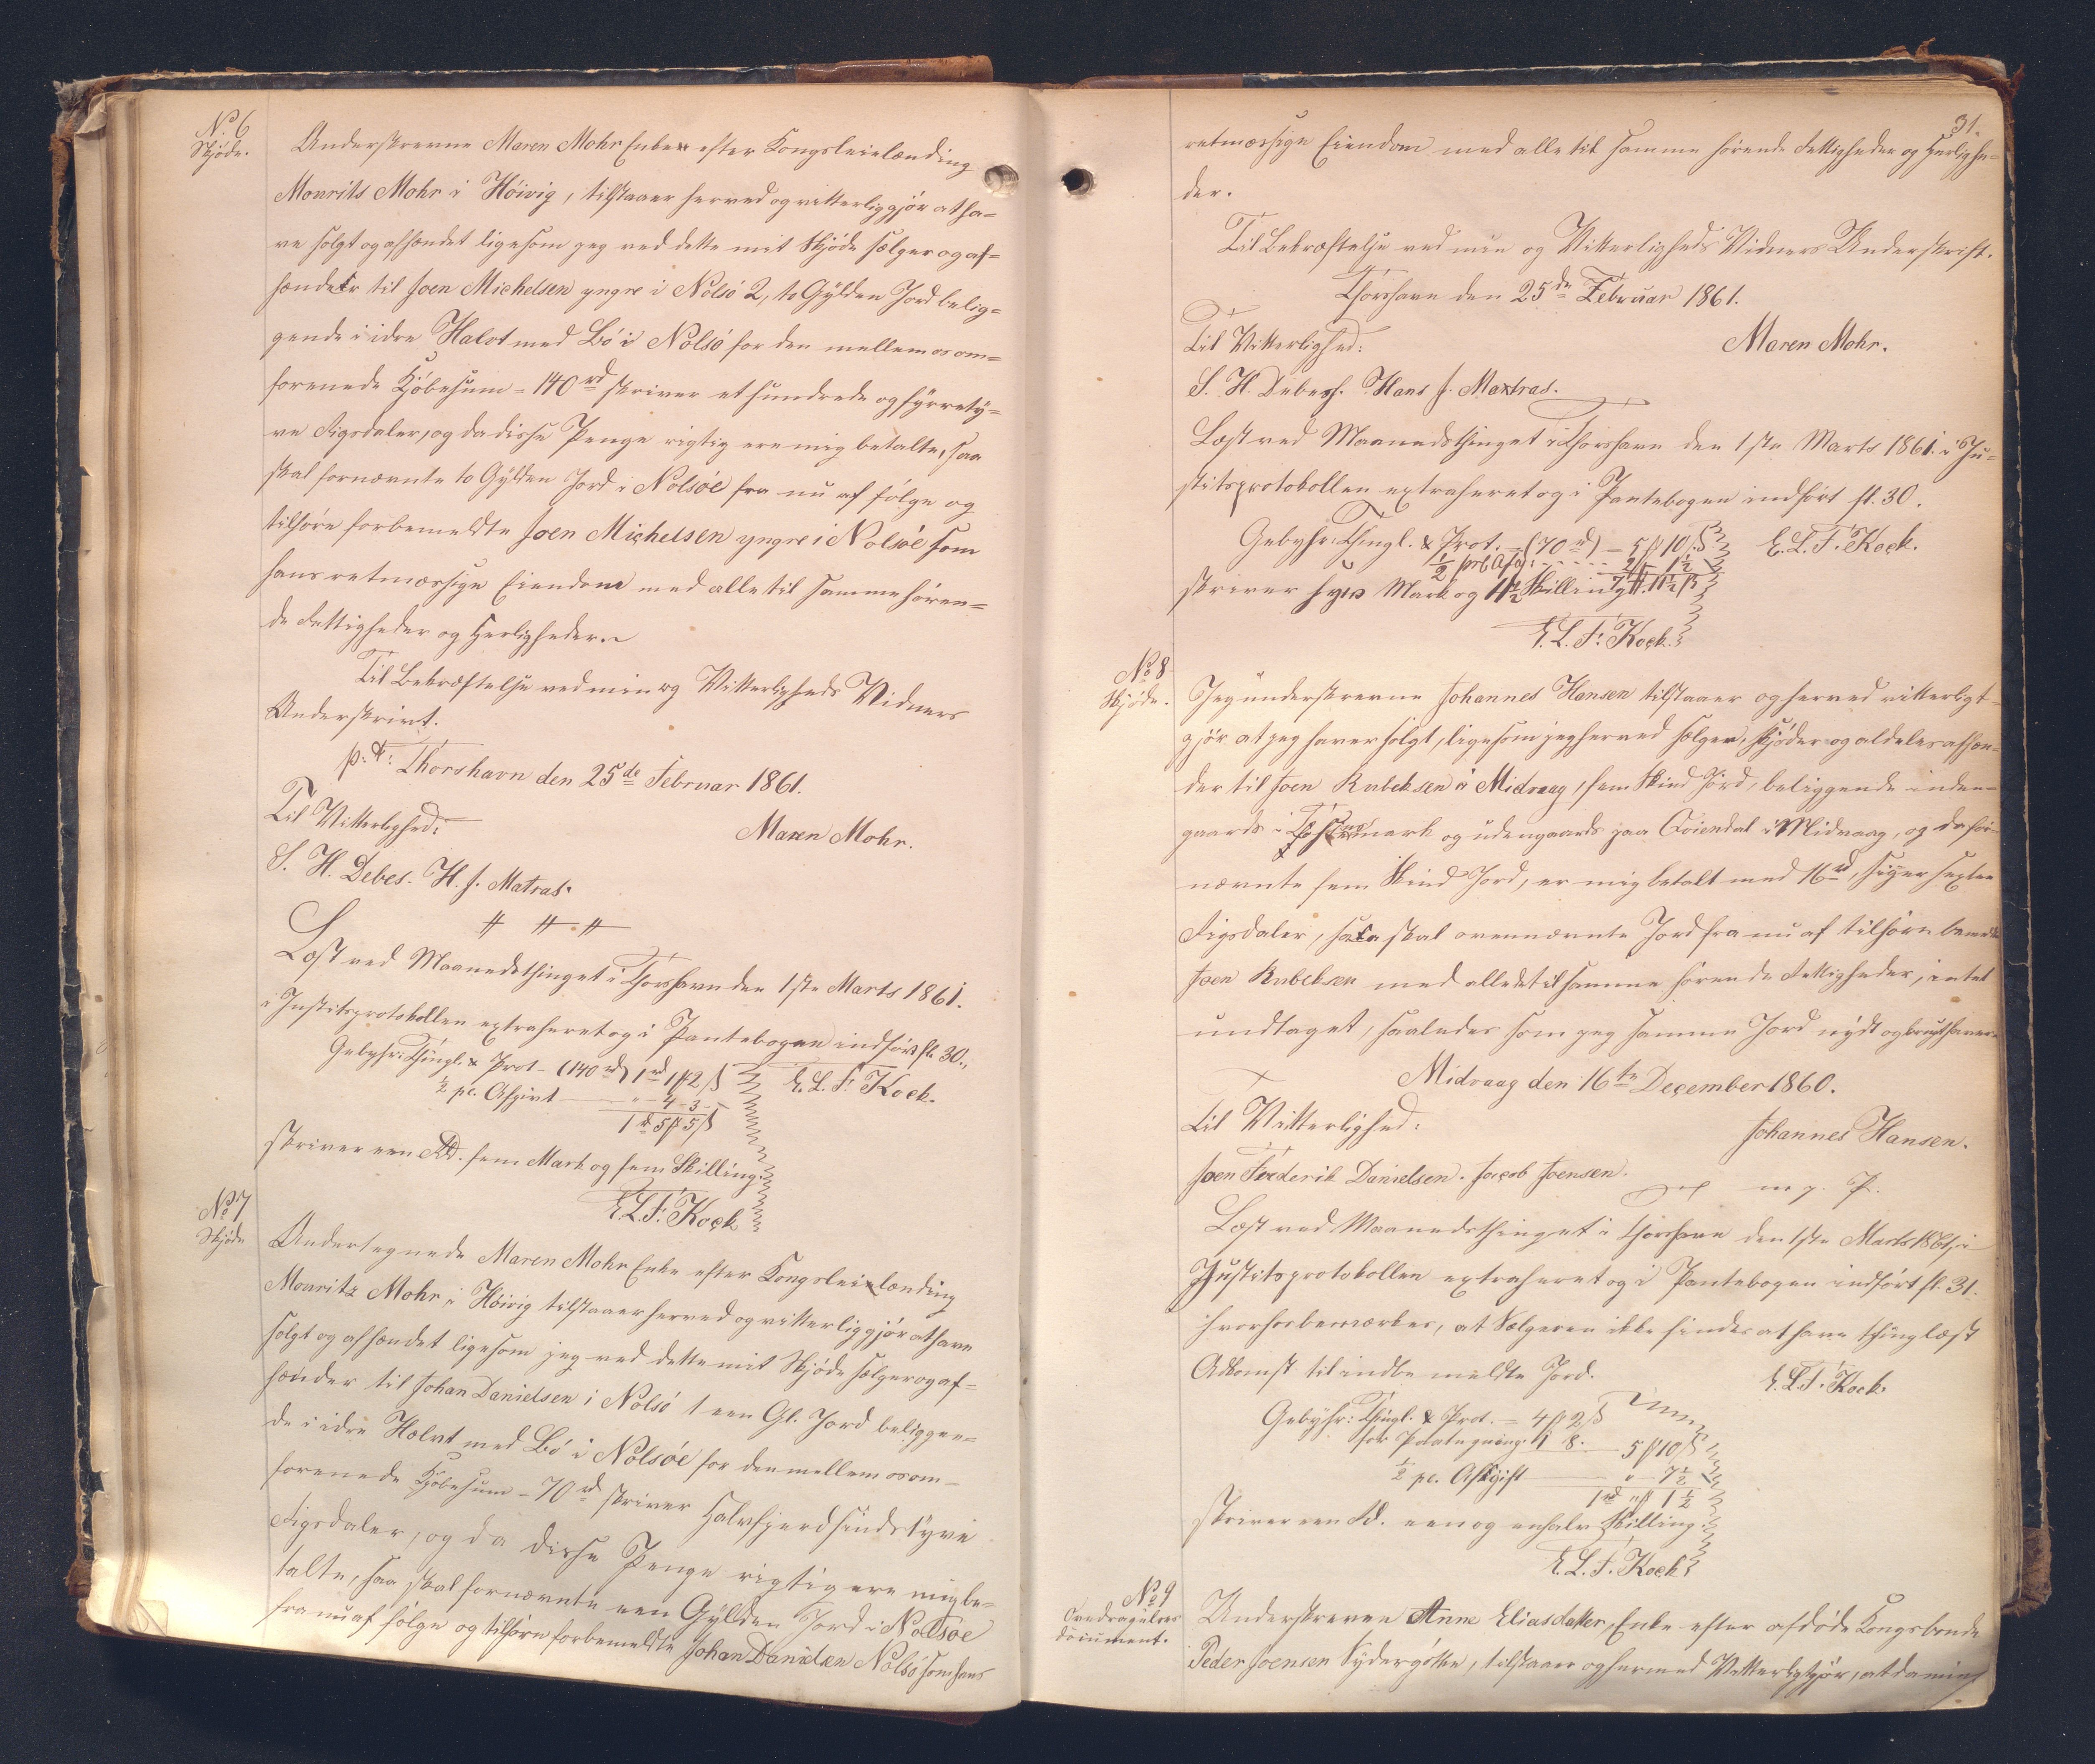 No 6
Skjöde.
Underskrevne Maren Mohr Enke efter Kongsleielænding
Mourits Mohr i Höivig, tilstaaer herved og vitterliggjör at ha-
ve solgt og afhændet ligesom jeg ved dette mit Skjöde sælger og af-
hænder til Joen Michelsen yngre i Nolsö 2, to Gylden Jord belig-
gende i idre Halvt med Bö i Nolsö for den mellem os om-
forenede Kjöbesum = 140 rd skriver et hundrede og fyrrety-
ve Rigsdaler, og da disse Penge rigtig ere mig betalte, saa
skal fornævnte to Gylden Jord i Nolsöe fra nu af fölge og
tilhöre forbemeldte Joen Michelsen yngre i Nolsöe som
hans retmæssige Eiendom med alle til samme hören-
de Rettigheder og Herligheder.
Til Bekræftelse ved min og Vitterligheds Vidners
Underskrivt.
p: t: Thorshavn den 25de Februar 1861.
Til Vitterlighed:
Maren Mohr.
S. H. Debes. H. J. Matras.
Læst ved Maanedsthinget i Thorshavn den 1ste Marts 1861.
i Justitsprotokollen extraheret og i Pantebogen indfört fl. 30.
Gebyhr: Thingl. & Prot - (140 rd) 1 rd 1 # 2 ß
E. L. F. Kock.
½ pc. Afgivt " 4 - 3 -
1 rd 5 # 5 ß
skriver een Rd. fem Mark og fem Skilling.
E. L. F. Kock
No 7
Skjöde
Undertegnede Maren Mohr Enke efter Kongsleielænding
Mouritz Mohr i Höivig tilstaaer herved og vitterliggjör at have
solgt og afhændet ligesom jeg ved dette mit Skjöde sælger og af-
hænder til Johan Danielsen i Nolsö 1 een Gl. Jord beliggen-
de i idre Halvt med Bö i Nolsöe for den mellem os om-
forenede Kjöbesum - 70 rd skriver Halvfjerdsindstyve
Rigsdaler, og da disse Penge rigtig ere mig be-
talte, saa skal fornævnte een Gylden Jord i Nolsöe
fra nu af fölge og tilhöre forbemeldte Johan Danielsen Nolsö som hans
31.
retmæssige Eiendom med alle til samme hörende Rettigheder og Herlighe-
der.
Til Bekræftelse ved min og Vitterligheds Vidners Underskrift.
Thorshavn den 25de Februar 1861.
Til Vitterlighed:
Maren Mohr.
S. H. Debes. Hans J. Matras.
Læst ved Maanedsthinget i Thorshavn den 1ste Marts 1861. i Ju-
stitsprotokollen extraheret og i Pantebogen indfört fl. 30.
Gebyhr: Thingl. & Prot. - (70 rd) - 5 # 10 ß
E. L. F. Kock.
½ prC Afg: 2 - 1½
7 # 11½ ß
skriver syv Mark og 11½ Skilling
E. L. F. Kock.
No 8
Skjöde.
Jeg underskrevne Johannes Hansen tilstaaer og herved vitterligt-
gjör at jeg haver solgt, ligesom jeg herved sælger, skjöder og aldeles afhæn-
der til Joen Rubeksen i Midvaag, fem Skind Jord, beliggende inden-
gaards i mark og udengaards paa Qviendal i Midvaag, og da for-
nævnte fem Skind Jord, er mig betalt med 16 rd, siger sexten
Rigsdaler, saa skal ovennævnte Jord fra nu af tilhöre bemeldte
Joen Rubeksen med alle det til samme hörende Rettigheder, intet
undtaget, saaledes som jeg samme Jord nydt og brugt haver.
Midvaag den 16te December 1860.
Til Vitterlighed:
Johannes Hansen.
Joen Frederik Danielsen. Jacob Joensen.
m. p. P.
Læst ved Maanedsthinget i Thorshavn den 1ste Marts 1861, i
Justitsprotokollen extraheret og i Pantebogen indfört fl. 31.
hvorhos bemærkes, at Sælgeren ikke findes at have thinglæst
Adkomst til indbemeldte Jord.
E. L. F. Kock
Gebyhr: Thingl. & Prot. = 4 # 2 ß
for Paategning 1 8. 5 # 10 ß
½ pc. Afgift " 7½
1 rd " # 1½
skriver een Rd. een og en halv Skilling.
E. L. F. Kock
No 9
document.
Underskreven Anne Eliasdatter, Enke efter afdöde Kongsbonde
Peder Joensen Sydergötte, tilstaaer og hermed Vitterligtgjör, at da min